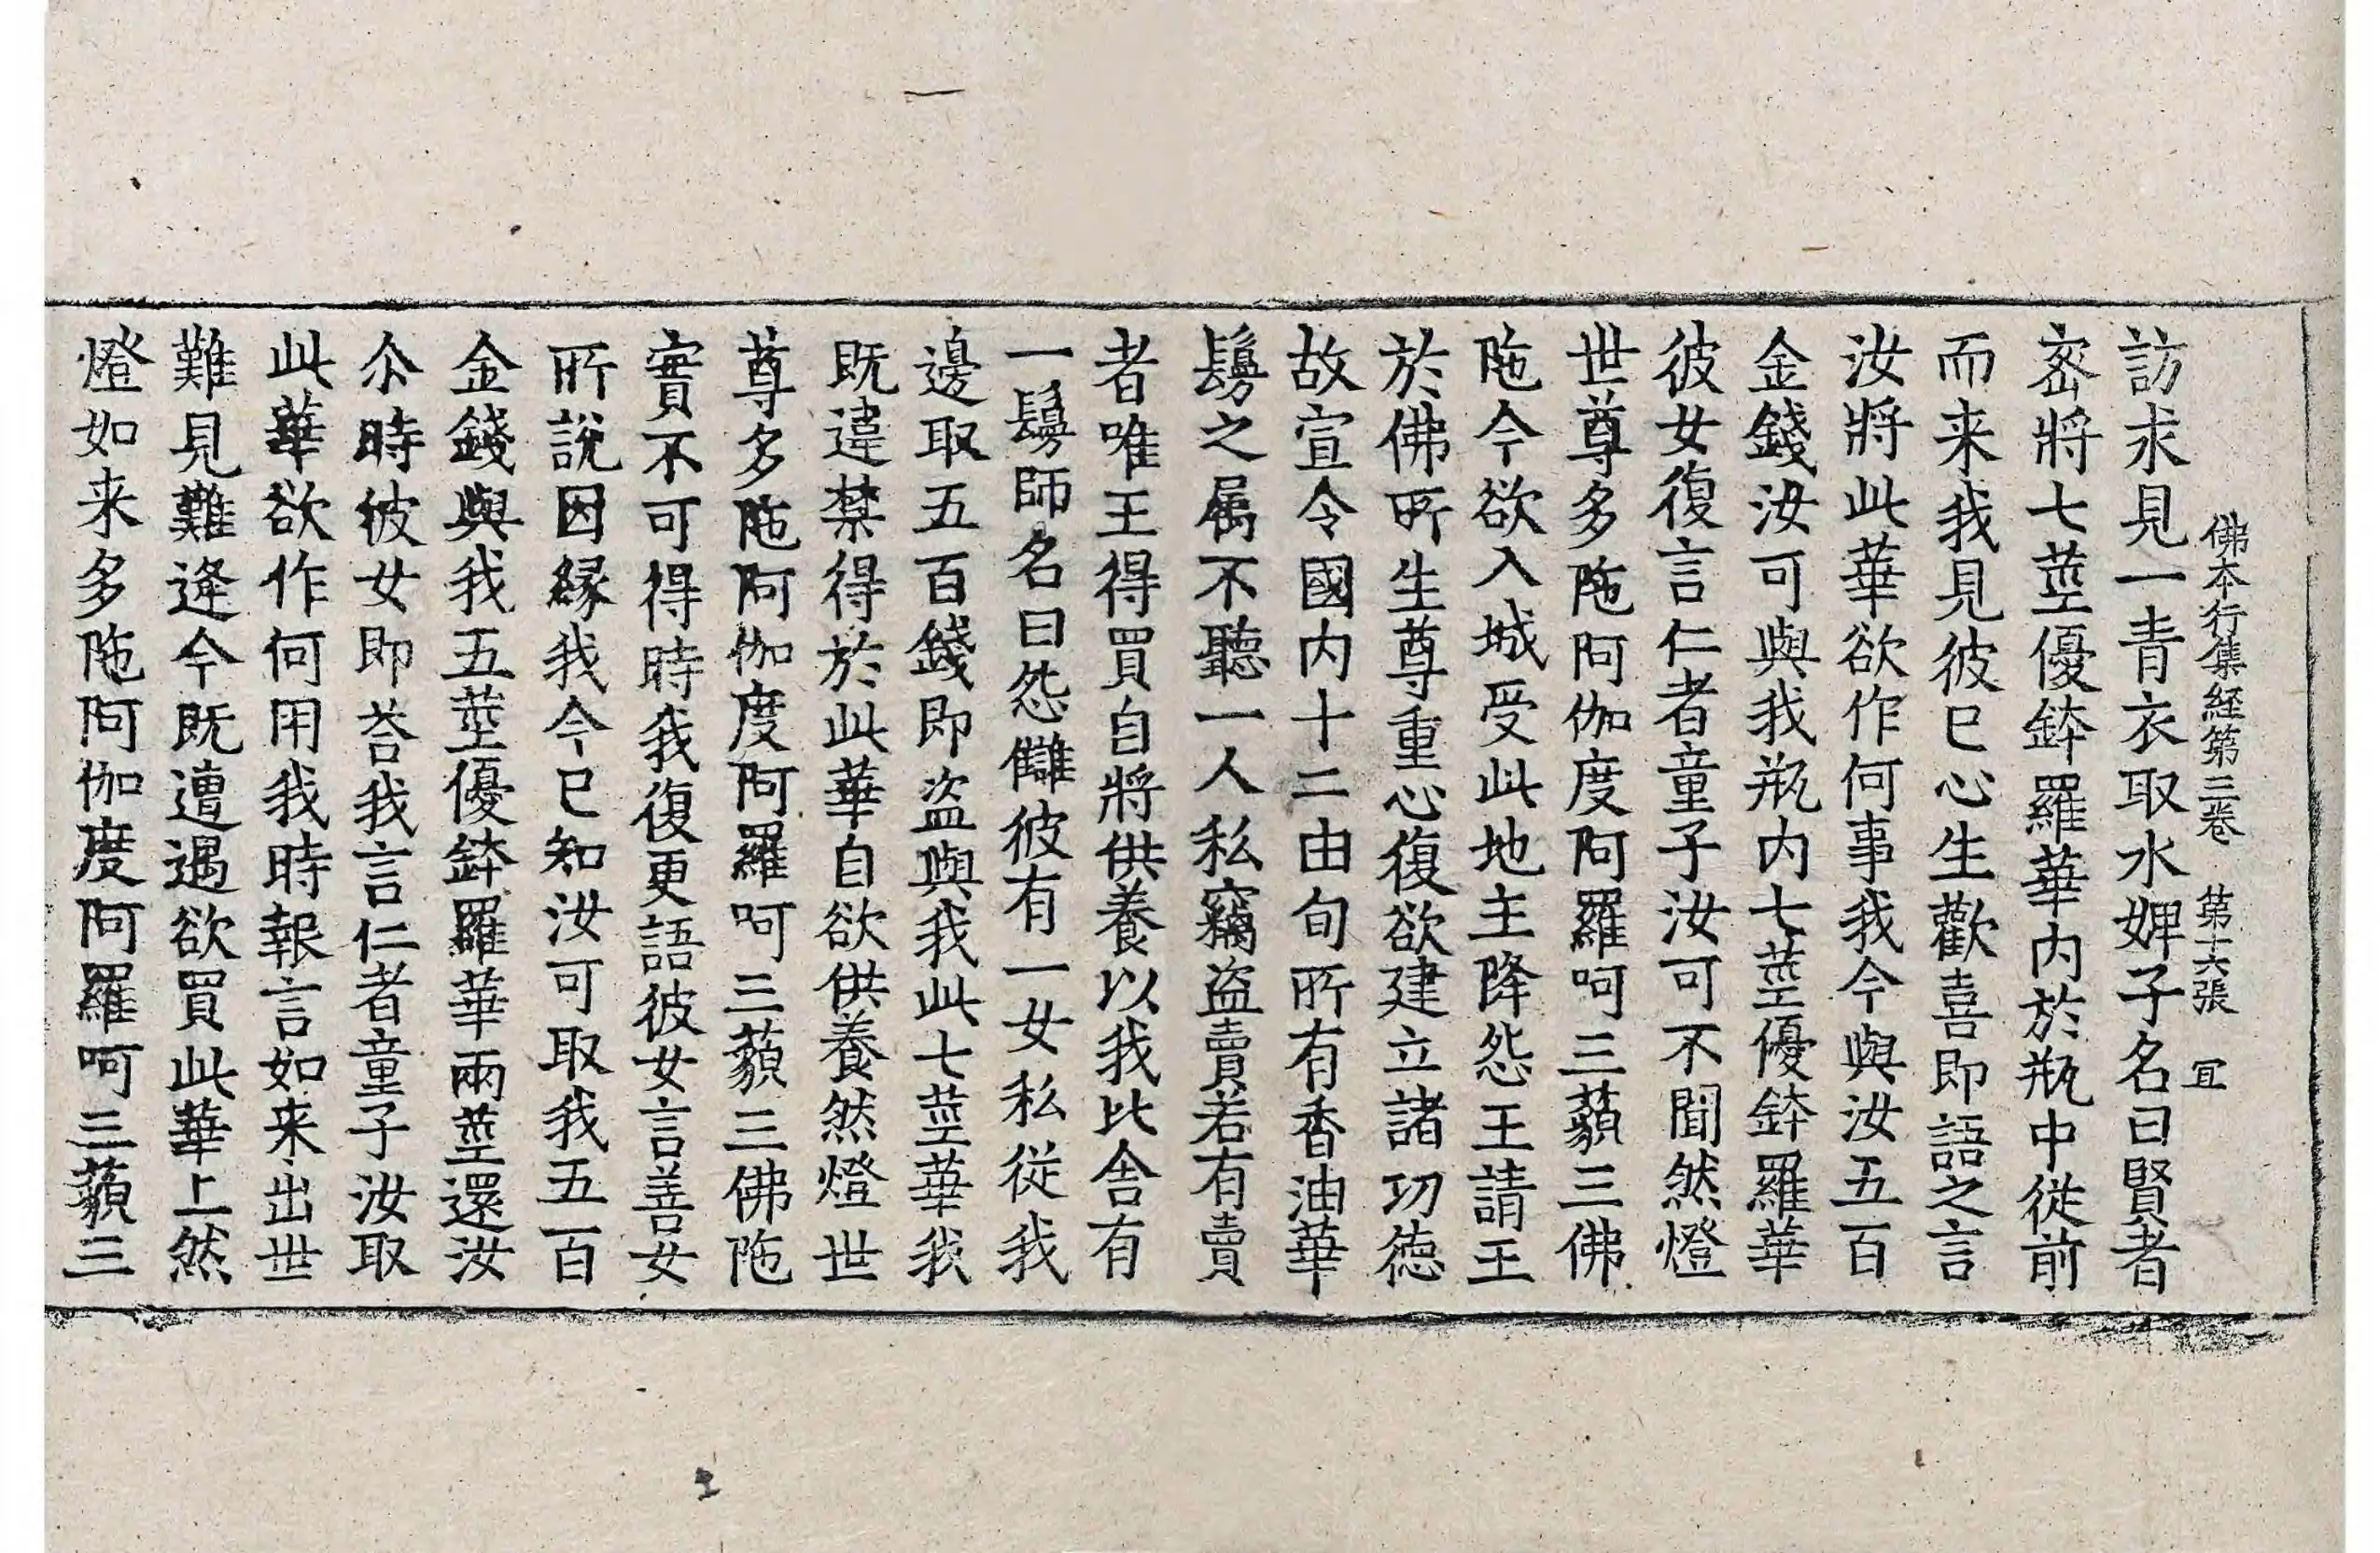 佛本行集経第三卷 第十六張 冝
訪求見一青衣取水婢子名曰賢者
宻將七莖優鉢羅華内於瓶中從前
而来我見彼已心生歡喜即語之言
汝將此華欲作何事我今與汝五百
金錢汝可與我瓶内七莖優鉢羅華
彼女復言仁者童子汝可不聞然燈
世尊多陁阿伽度阿羅呵三藐三佛
陁今欲入城受此地主降怨王請王
於佛所生尊重心復欲建立諸功徳
故宣令國内十二由旬所有香油華
鬘之属不聽一人私竊盗賣若有賣
者唯王得買自將供養以我比舎有
一鬘師名曰怨讎彼有一女私從我
邊取五百錢即盗與我此七莖華我
既違禁得於此華自欲供養然燈世
尊多陁阿伽度阿羅呵三藐三佛陁
實不可得時我復更語彼女言善女
所說因縁我今已知汝可取我五百
金錢與我五莖優鉢羅華兩莖還汝
尒時彼女即荅我言仁者童子汝取
此華欲作何用我時報言如来出世
難見難逢今既遭遇欲買此華上然
燈如来多陁阿伽度阿羅呵三藐三